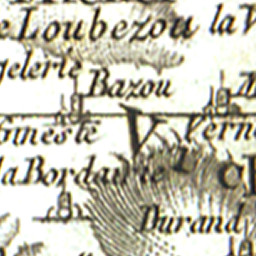 Loubezou la V
gelerie
Bazou
Gmeste
Verne
la Bordaurie
Durand